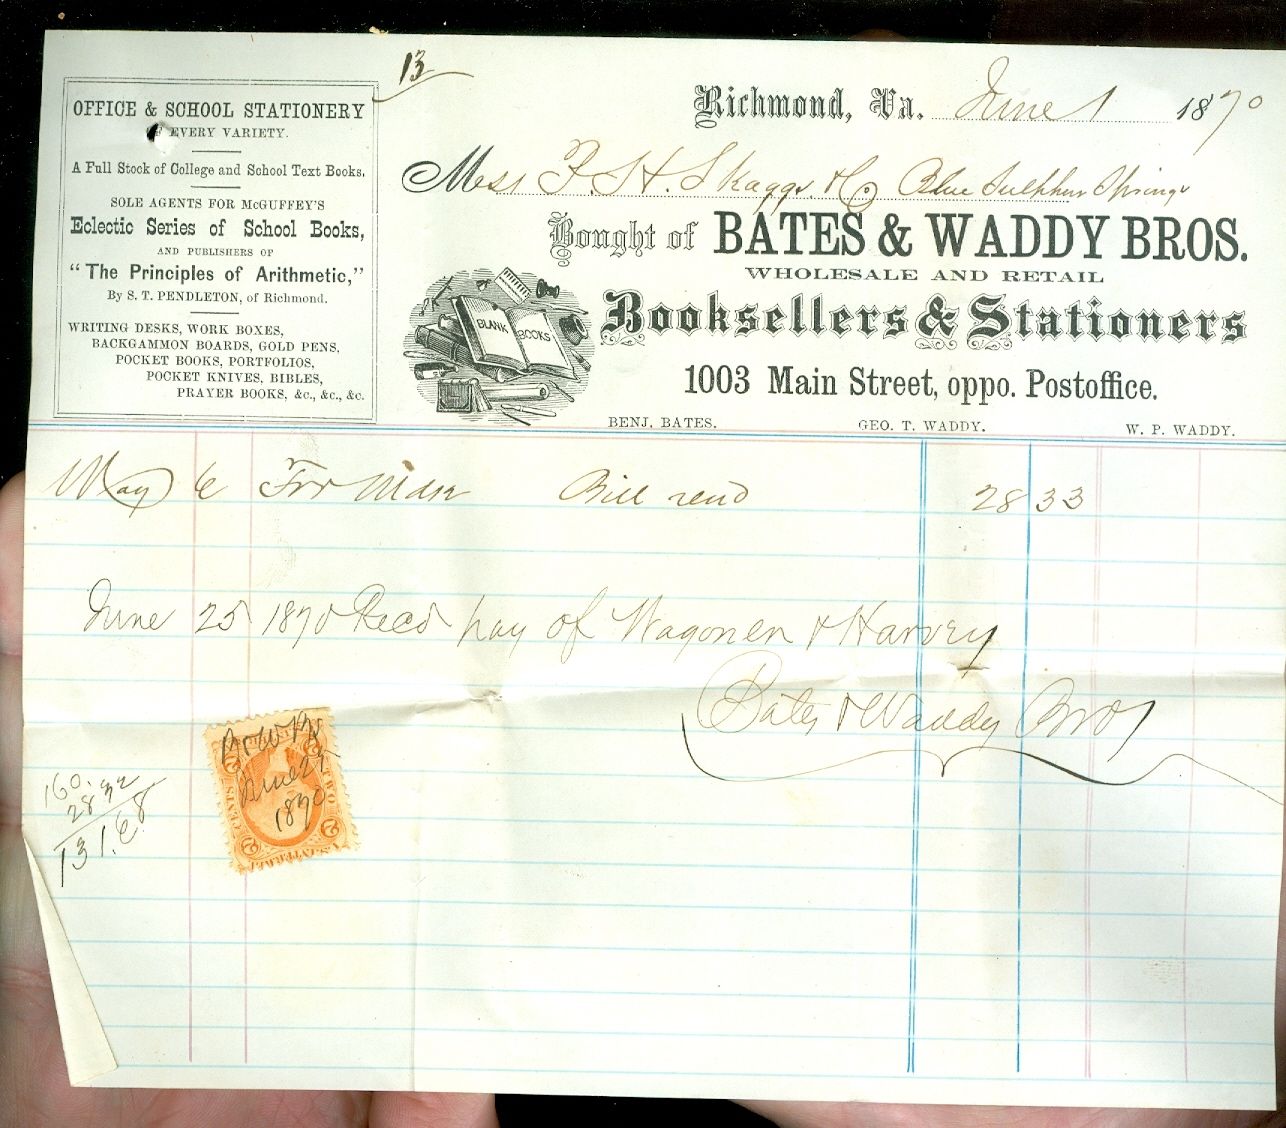 13
OFFICE & SCHOOL STATIONERY
EVERY VARIETY.
A Full Stock of College and School Text Books,
SOLE AGENTS FOR McGUFFEY'S
Eclectic Series of School Books,
AND PUBLISHERS OF
"The Principles of Arithmetic,"
By S. T. PENDLETON, of Richmond.
WRITING DESKS, WORK BOXES,
BACKGAMMON BOARDS, GOLD PENS,
POCKET BOOKS, PORTFOLIOS,
POCKET KNIVES, BIBLES,
PRAYER BOOKS, &c., &c., &c.
Richmond, Va. June 1 1870
Mess F. H. Skaggs & Co Blue Sulphur Springs
Bought of BATES & WADDY BROS.
WHOLESALE AND RETAIL
Booksellers & Stationers
BLANK BOOKS
1003 Main Street, oppo. Postoffice.
BENJ. BATES. GEO. T. WADDY. W. P. WADDY.
May 6 For Mdse Bill rend 28 33
June 25 1870 Recd pay of Wagonen & Harvey
Bates & Waddy Bros
B & W Bs
June 25
1870
TWO CENTS
U.S. INTER. REV.
2
160.
28 32
131.68